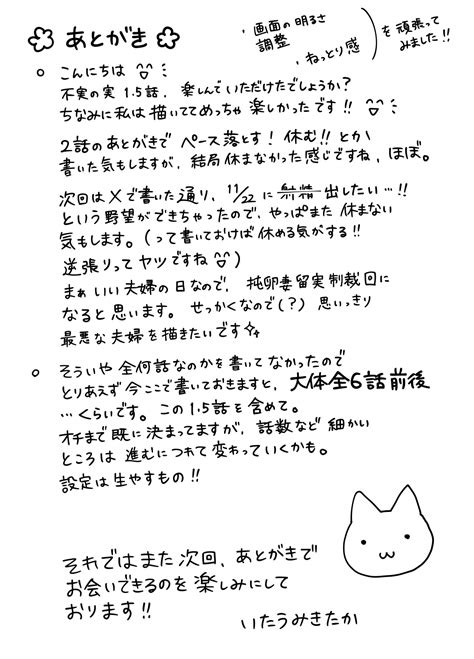 あとがき
・画面の明るさ調整
・ねっとり感
を頑張ってみました!!
こんにちは
不実の実 1.5話、楽しんでいただけたでしょうか?
ちなみに私は描いててめっちゃ楽しかったです!!
2話のあとがきでペース落とす!休む!!とか
書いた気もしますが、結局休まなかった感じですね、ほぼ。
次回はXで書いた通り、11/22に射精出したい…!!
という野望ができちゃったので、やっぱまた休まない
気もします。(って書いておけば休める気がする!!
逆張りってヤツですね)
まぁいい夫婦の日なので、托卵妻留実制裁回に
なると思います。せっかくなので(?)思いっきり
最悪な夫婦を描きたいです
そういや全何話なのかを書いてなかったので
とりあえず今ここで書いておきますと、大体全6話前後
…くらいです。この1.5話を含めて。
オチまで既に決まってますが、話数など細かい
ところは進むにつれて変わっていくかも。
設定は生やすもの!!
それではまた次回、あとがきで
お会いできるのを楽しみにして
おります!!
いたうみきたか